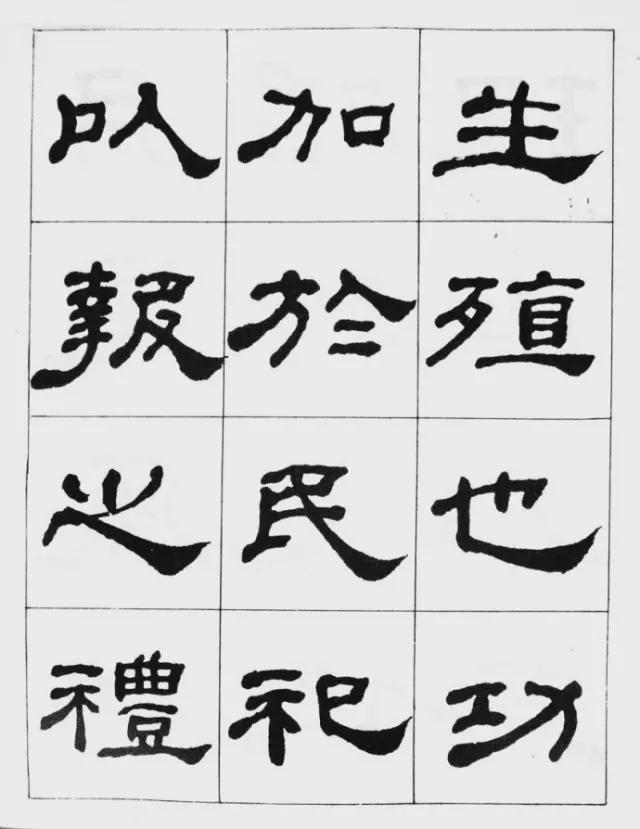 生殖也功
加於民祀
以報之禮